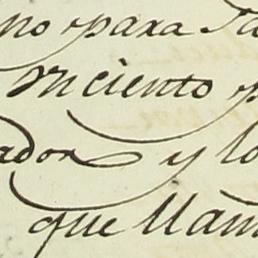 no para
miciento
ador y lo
que llam